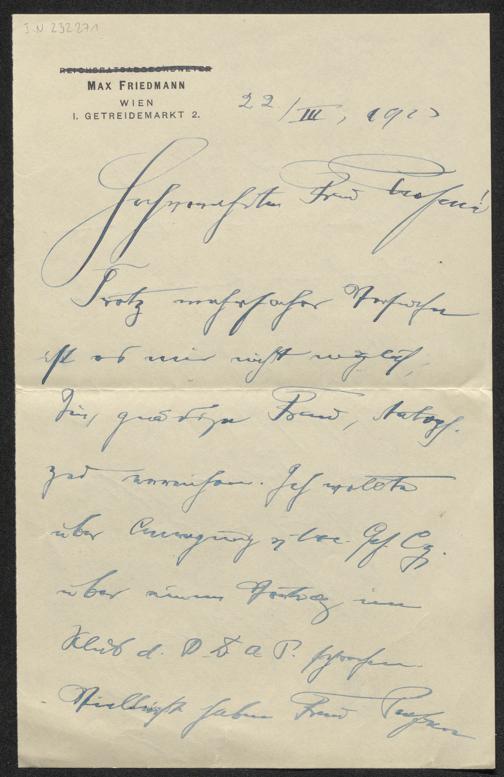 J.N. 232271
REICHSRATSABGEORDNETER
MAX FRIEDMANN
WIEN
I. GETREIDEMARKT 2.
22/III, 1923
Hochverehrte Frau
Trotz mehrfacher Versuche
ist es mir nicht möglich,
Sie, gnädige Frau, teleph.
zu erreichen. Ich wollte
über Anregung
über einen Vortrag im
Klub d. D D A P. sprechen
Vielleicht haben Frau